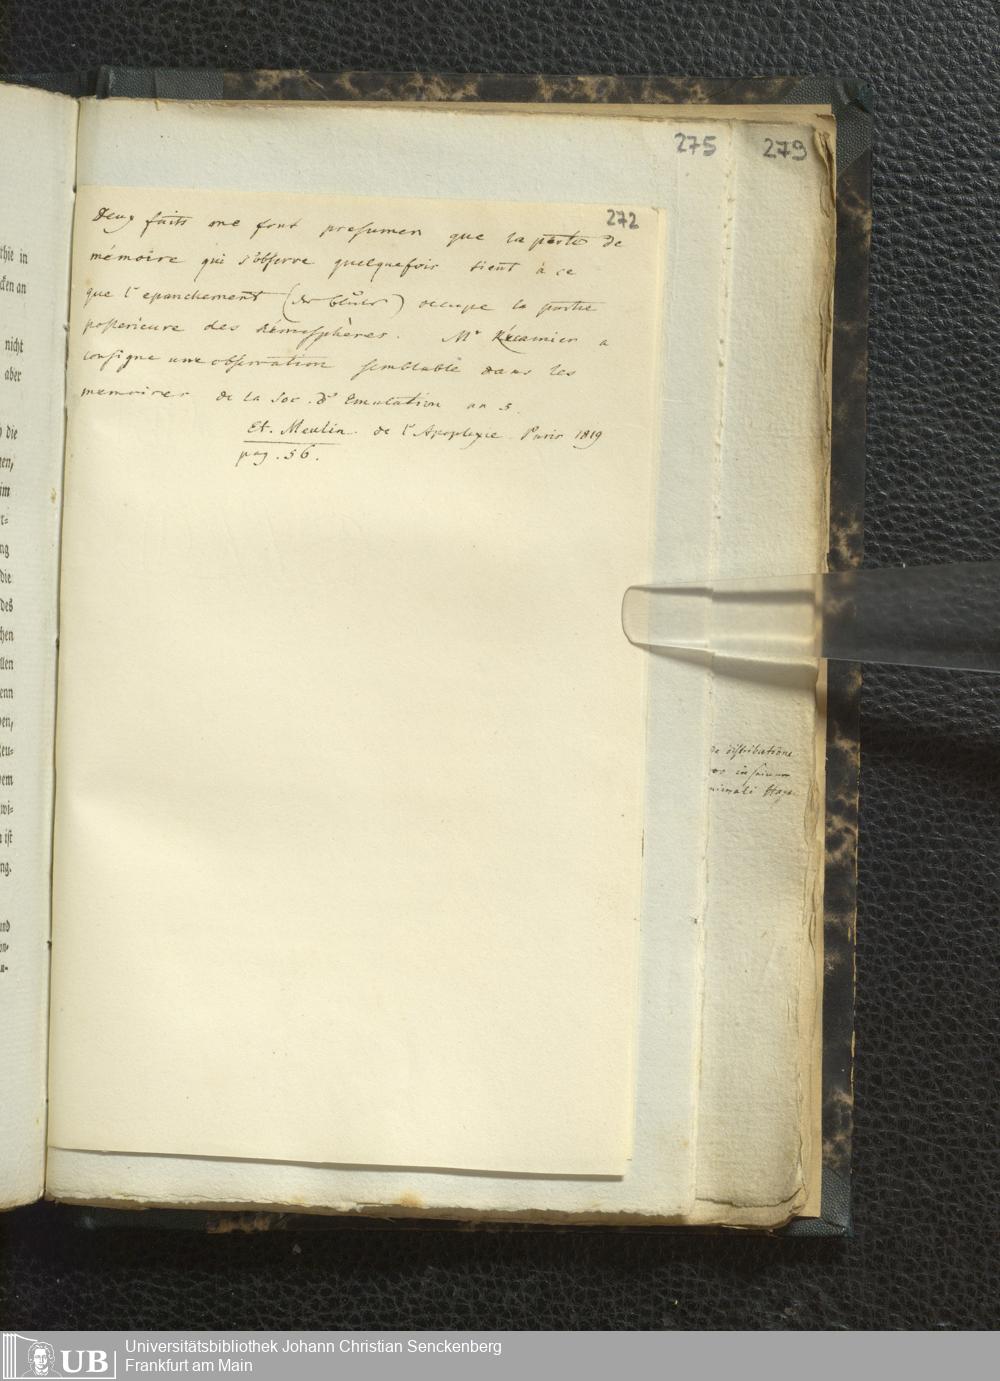 275
279
272
Deux faits me font presumer que la perte de
mémoire qui s'observe quelquefois tient à ce
que l'epanchement (der Bluter) occupe la partie
posterieure des hémisphères. Mr Récamier a
consigne une observation semblable dans les
memoires de la Soc. d'Emulation an 5.
Et. Meulin. de l'Apoplexie. Paris 1819
pag. 56.
thie in
cken an
nicht
aber
die
gen,
im
r=
ng
die
des
hen
llen
enn
en,
eu-
em
wi-
ist
ng.
und
on-
u-
de distributione
Universitätsbibliothek Johann Christian Senckenberg
Frankfurt am Main
UB